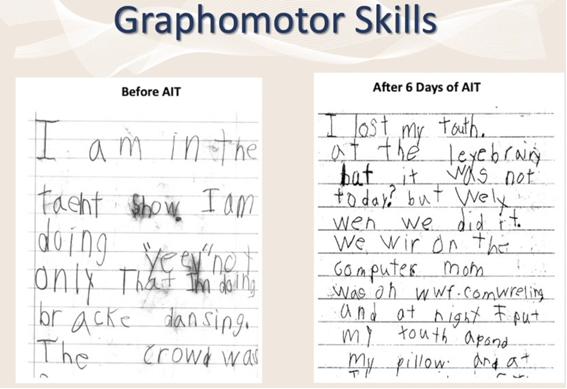 Graphomotor Skills
Before AIT
I am in the
taent show. I am
doing "yeey" not
only That Im doing
br acke dansing.
The crowd was
After 6 Days of AIT
I lost my touth.
at the leyebrairy
but it was not
today? but Wely
wen we did it.
We wir on the
computer mom
was on wwf.comwreling
and at night I put
my touth apond
my pillow. and at